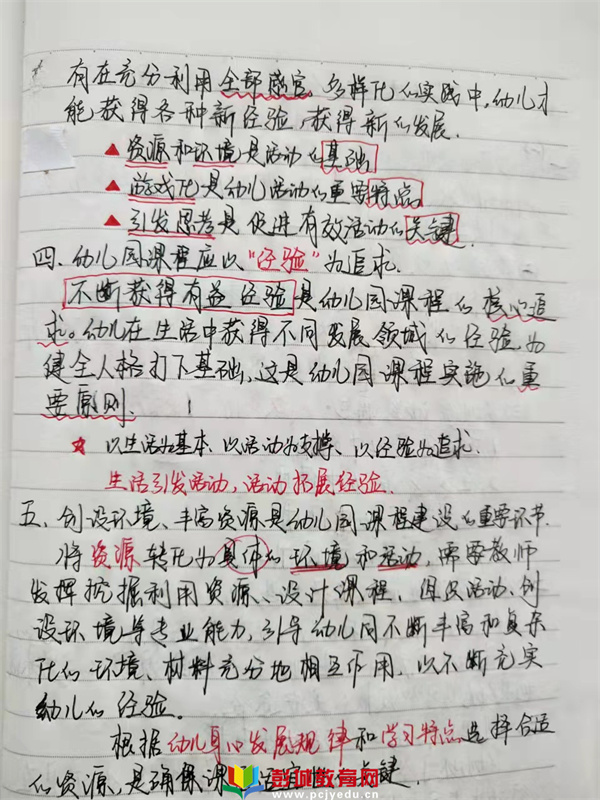 有在充分利用全部感官、多样化的实践中,幼儿才
能获得各种新经验,获得新的发展.
▲资源和环境是活动的基础
▲游戏化是幼儿活动的重要特点
▲引发思考是促进有效活动的关键.
四.幼儿园课程应以“经验”为追求.
不断获得有益经验是幼儿园课程的核心追
求。幼儿在生活中获得不同发展领域的经验.为
健全人格打下基础,这是幼儿园课程实施的重
要原则.
☆ 以生活为基本、以活动为支撑、以经验为追求.
生活引发活动,活动拓展经验.
五.创设环境、丰富资源是幼儿园课程建设的重要环节.
将资源转化为具体的环境和活动,需要教师
发挥挖掘利用资源、设计课程、组织活动、创
设环境等专业能力,引导幼儿同不断丰富和复杂
化的环境、材料充分地相互作用,以不断充实
幼儿的经验。
根据幼儿身心发展规律和学习特点选择合适
的资源,是确保课 关键.
彭城教育网
www.pcjyedu.cn